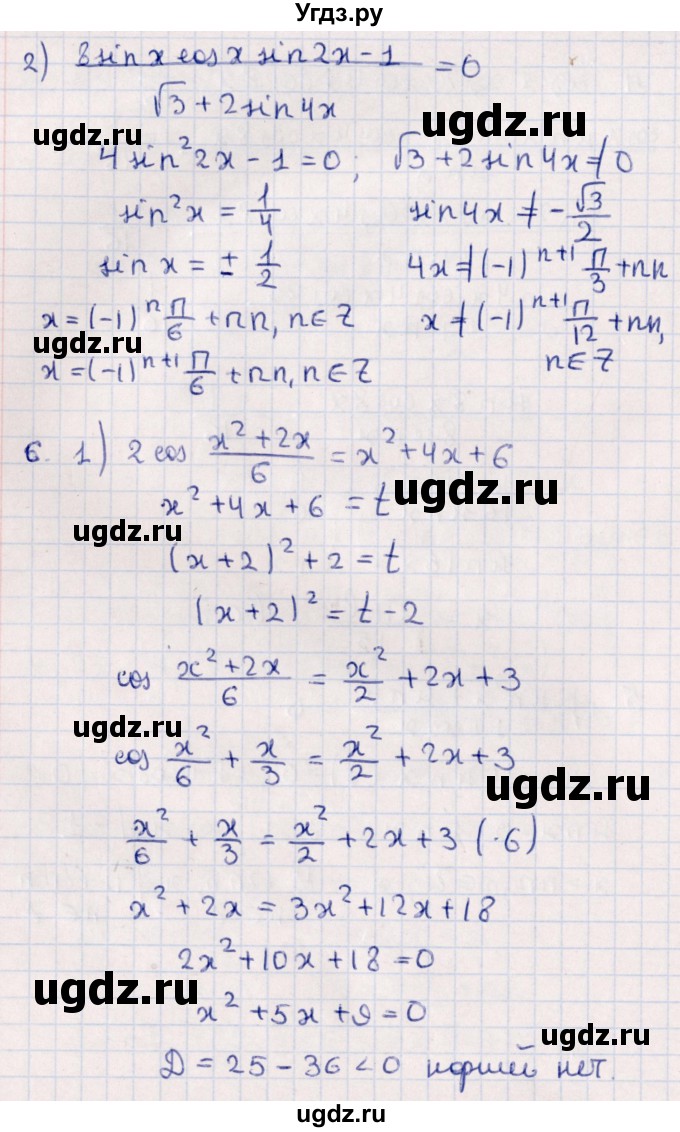 Угдз.ру
2) 8sinxcosx sin2x-1 / √3+2sin4x = 0
ugdz.ru ugdz.ru
4sin²2x-1=0; √3+2sin4x≠0
sin²x = 1/4 sin4x ≠ -√3/2
sin x = ± 1/2 4x≠(-1)ⁿ⁺¹ П/3 +пn
x=(-1)ⁿ П/6 +пn, n∈Z x≠(-1)ⁿ⁺¹ П/12 +пn,
ugdz.ru
x=(-1)ⁿ⁺¹ П/6 +пn, n∈Z n∈Z
6. 1) 2cos (x²+2x)/6 = x²+4x+6
ugdz.ru
x²+4x+6 = t
ugdz.ru
(x+2)²+2=t
(x+2)²=t-2
cos (x²+2x)/6 = x²/2 +2x+3
ugdz.ru
cos x²/6 + x/3 = x²/2 +2x+3
ugdz.ru
x²/6 + x/3 = x²/2 +2x+3 (·6)
x²+2x = 3x²+12x+18
ugdz.ru
2x²+10x+18=0
ugdz.ru
x²+5x+9=0
ugdz.ru
Д=25-36<0 корней нет.
ugdz.ru